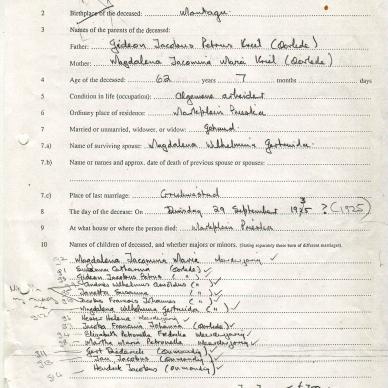 2 Birthplace of the deceased: Montagu
3 Names of the parents of the deceased:
Father: Gideon Jacobus Petrus Kriel (Oorlede)
Mother: Magdalena Jacomina Maria Kriel (Oorlede)
4 Age of the deceased: 62 years 7 months days
5 Condition in life (occupation): Algemene arbeider
6 Ordinary place of residence: Markplein Prieska
7 Married or unmarried, widower, or widow: Getroud
7.a) Name of surviving spouse: Magdalena Wilhelmina Gertruida
7.b) Name or names and approx. date of death of previous spouse or spouses:
7.c) Place of last marriage:
8 The day of the deceased: On Dinsdag 29 September ? (1925)
9 At what house or where the person died: Markplein Prieska
10 Names of children of deceased, and whether majors or minors. (Stating separately those born of different marriages).
Magdalena Jacomina Maria Meerderjarig
Susanna Catharina (Oorlede)
Gideon Jacobus Petrus (")
Andries Wilhelmus (")
Susanna (")
Jacobus Francois Johannes (")
Magdalena Wilhelmina Gertruida (")
Helena Meerderjarig
Jacoba Francina Johanna (Oorlede)
Elizabeth Petronella Fredrika Meerderjarig
Martha Maria Petronella Meerderjarig
Gert Diederick (Onmondig)
Jan Jacobus (Onmondig)
Hendrik Jacobus (Onmondig)